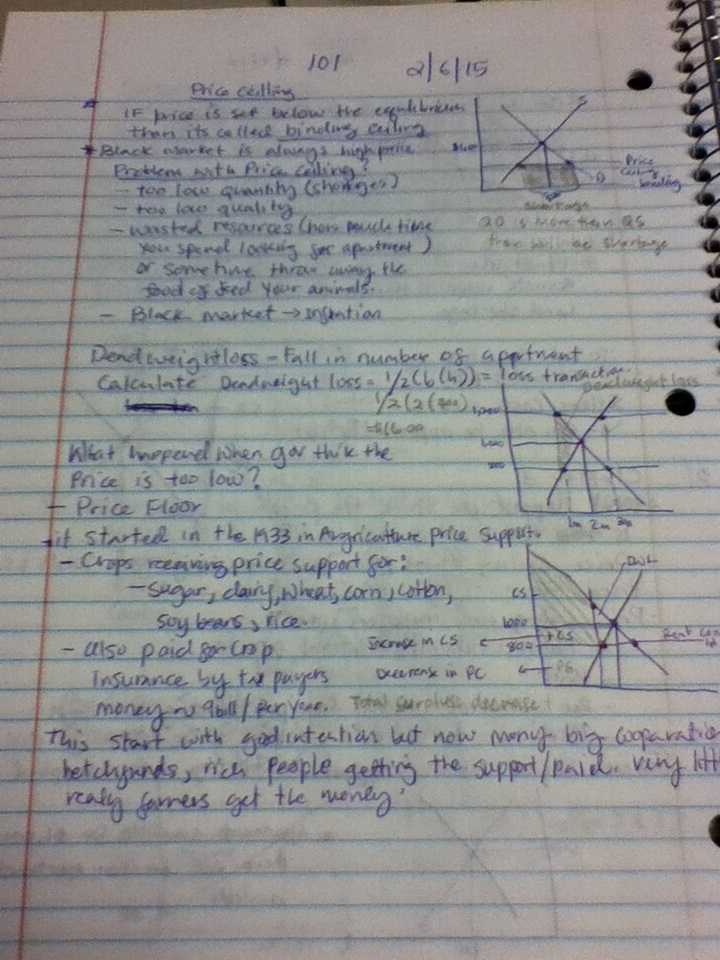 101 2/6/15
Price ceilling
IF price is set below the equilibrium
than its called binding ceiling
* Black market is always high price
Problem with Price Ceiling?
- too low quantity (shortges)
- too low quality
- wasted resources (how much time
you spend looking for apartment)
or sometime throw away the
food of feed your animals.
- Black market →
Price
ceiling
binding
S
D
shortage
QD is more than QS
than will be shortage
Deadweightloss = Fall in number of apprtment
Calculate Deadweight loss = 1/2(b(h)) = loss transaction
1/2(2(400)
Deadweight loss
1,200
1,000
800
1m 2m 3m
What happened when gov think the
Price is too low?
- Price Floor
- it started in the 1933 in Avgriculture price support.
- Crops receiving price support for:
- Sugar, dairy, wheat, corn, cotton,
soy bears, rice.
- also paid for crop
insurance by tax payers
money ~ 9bill/per year.
DWL
CS
1000
800
+CS
PS
Increase in CS
Decrease in PC
Total surpluss decrease
This start with god intention but now many big cooparatio
hetchfunds, rich people getting the support/paid. very litt
realy farmers get the money.